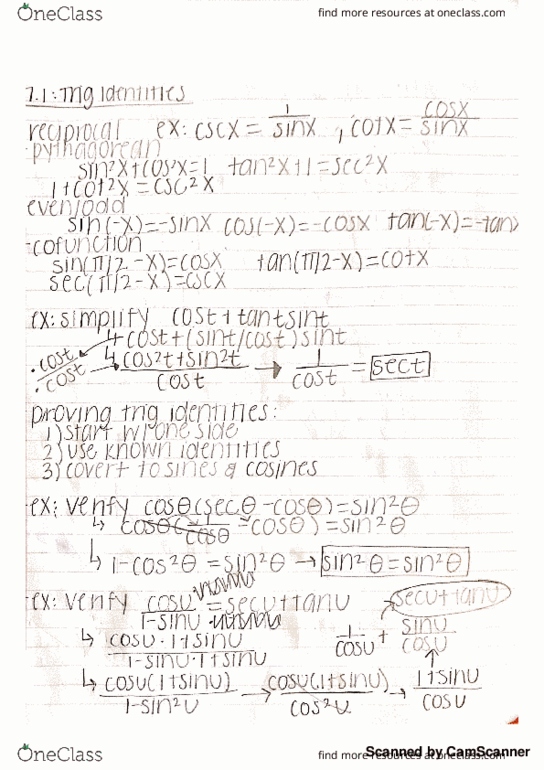 OneClass
find more resources at oneclass.com
7.1: Trig Identities
reciprocal ex: cscx = 1/sinx , cotx = cosx/sinx
pythagorean
sin²x+cos²x=1 tan²x+1=sec²x
1+cot²x=csc²x
even/odd
sin(-x)=-sinx cos(-x)=-cosx tan(-x)=-tanx
cofunction
sin(π/2-x)=cosx tan(π/2-x)=cotx
sec(π/2-x)=cscx
ex: simplify cost+tantsint
↳ cost+(sint/cost)sint
·cost/·cost ↳ cos²t+sin²t/cost → 1/cost = sect
proving trig identities:
1) start w/ one side
2) use known identities
3) covert to sines & cosines
ex: verify cosθ(secθ-cosθ)=sin²θ
↳ cosθ(1/cosθ-cosθ)=sin²θ
↳ 1-cos²θ=sin²θ → sin²θ=sin²θ
ex: verify cosu/1-sinu = secu+tanu
secu+tanu
↳ cosu·1+sinu/1-sinu·1+sinu
1/cosu + sinu/cosu
↳ cosu(1+sinu)/1-sin²u → cosu(1+sinu)/cos²u → 1+sinu/cosu
OneClass
find more resources at oneclass.com
Scanned by CamScanner